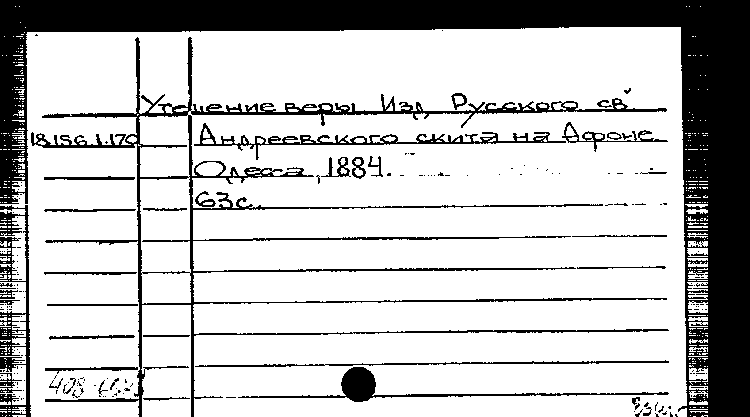 Утешение веры Изд. Русского св.
18.156.1.170 Андреевского скита на Афоне.
Одесса, 1884.
63с.